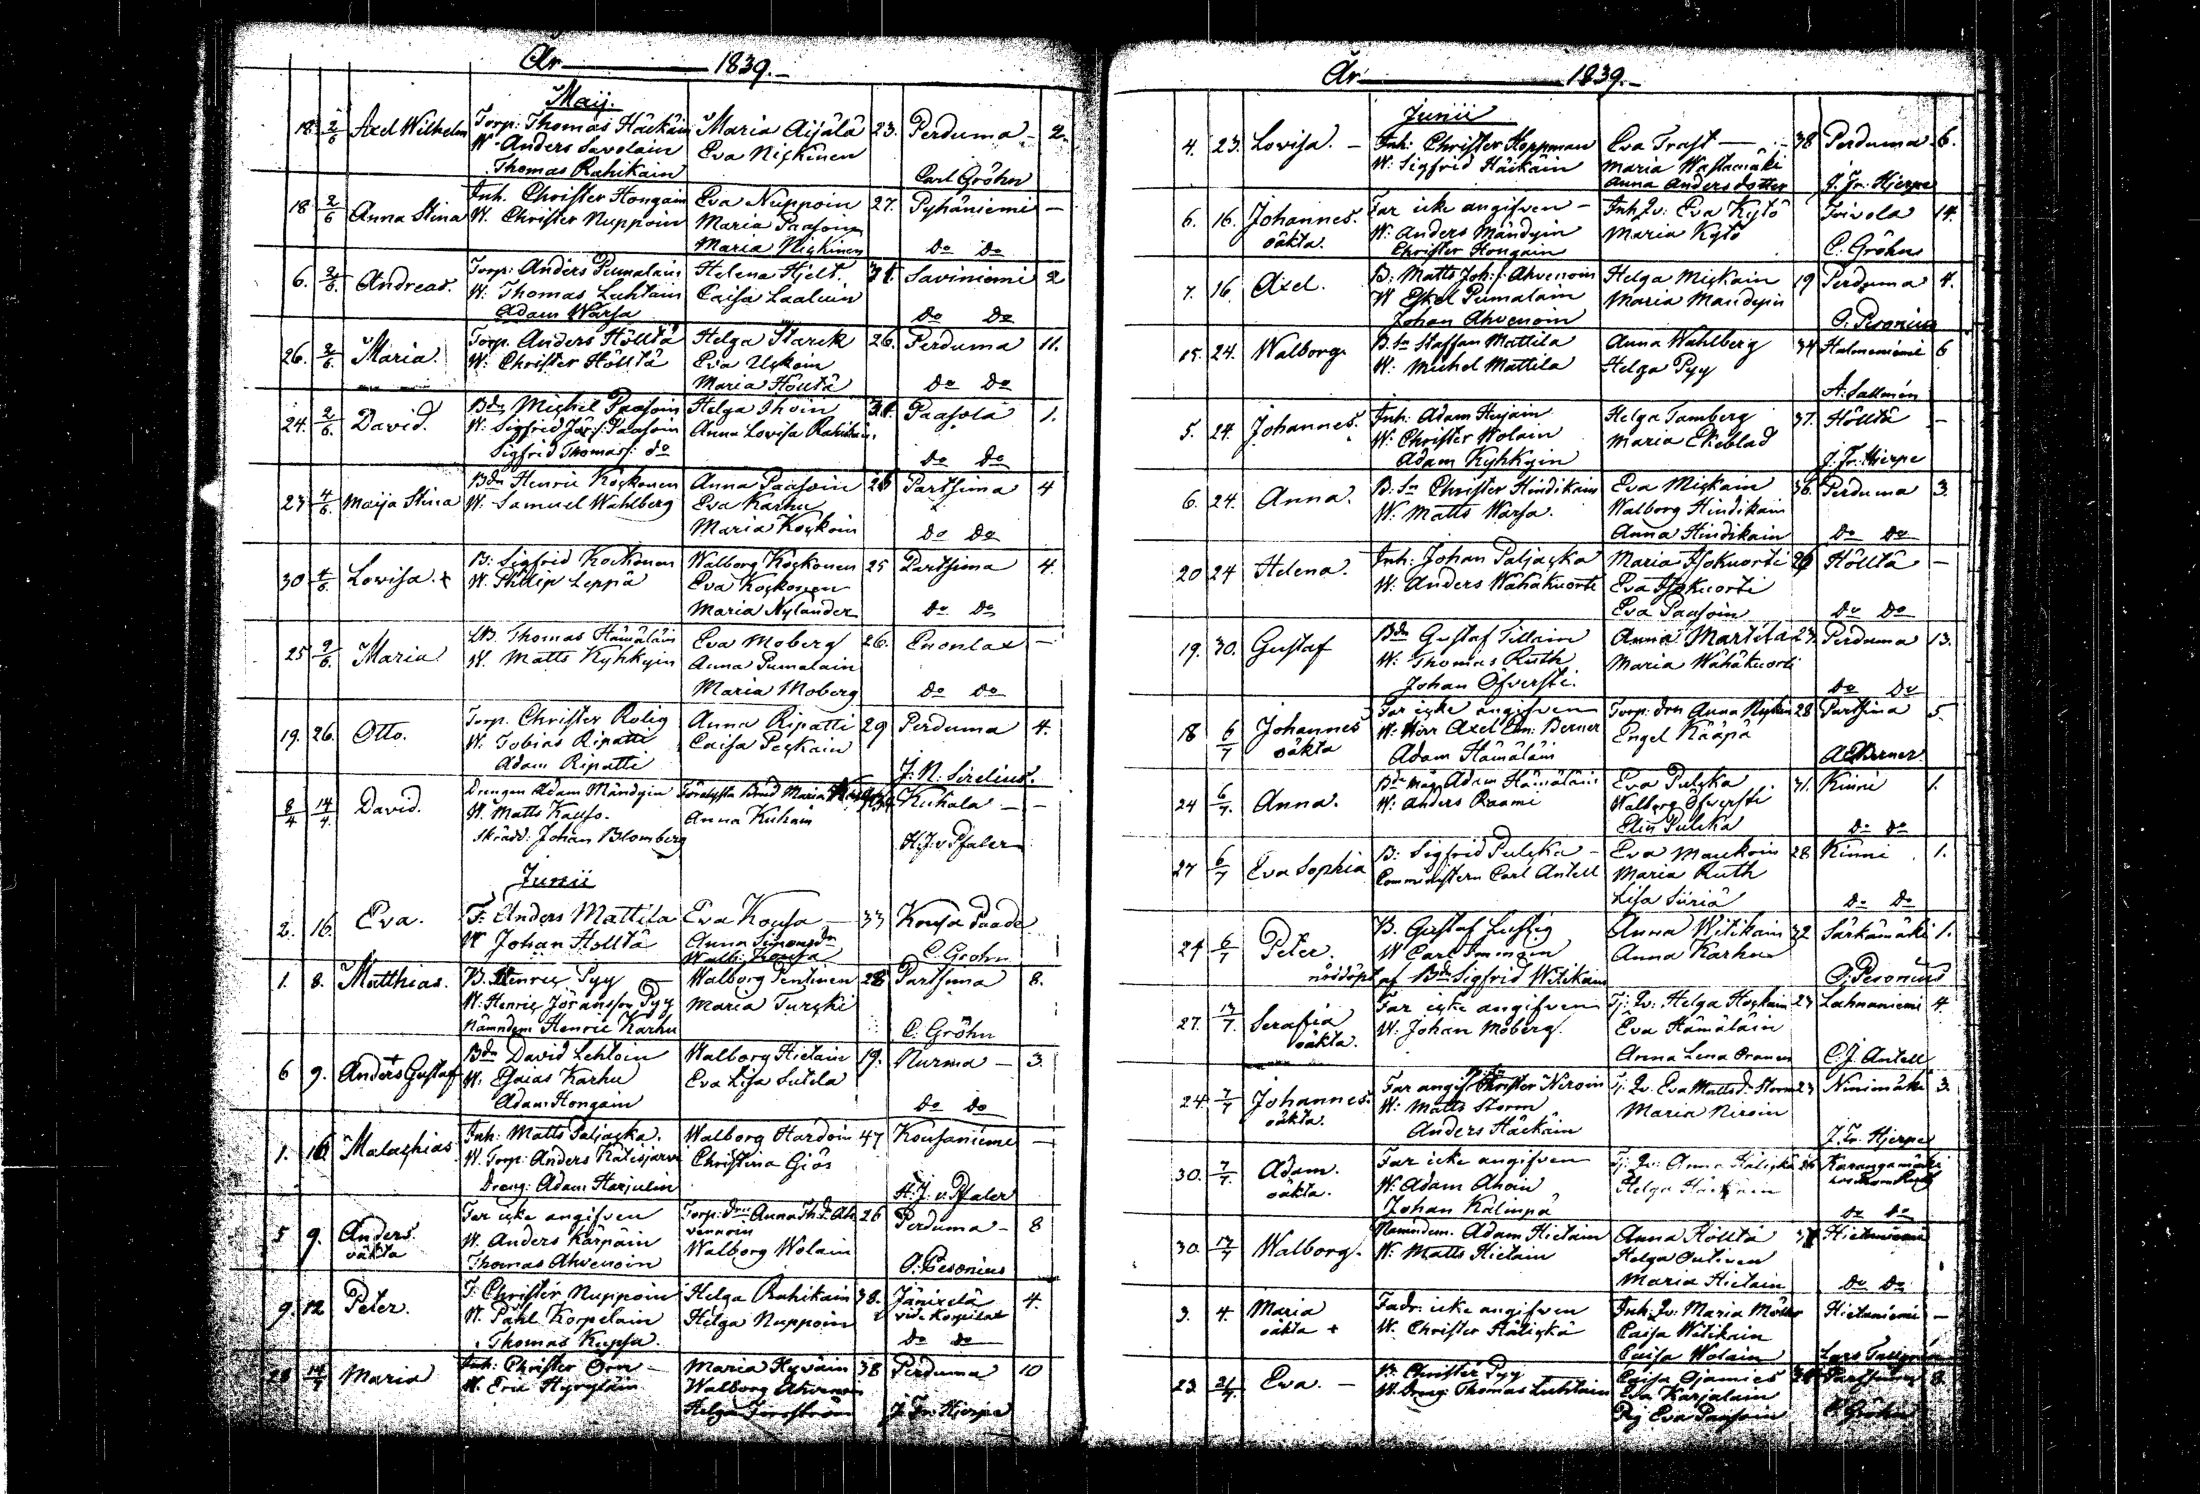 År 1839.
Maij.
18. 2/6 Axel Wilhelm Torp: Thomas Häckäin Maria Äijälä 23. Perduma 2.
W. Anders Savolain Eva Niskinen
Thomas Rahikain Carl Gröhn
18 2/6 Anna Stina Inh. Christer Hongain Eva Nuppoin 27. Pyhäniemi —
W. Christer Nuppoin Maria Paasoin
Maria Niskinen Do Do
6. 2/6 Andreas. Torp: Anders Pumalain Helena Hjelt. 31. Saviniemi 2
W. Thomas Luhtain Caisa Laaluin
Adam Warsa Do Do
26. 2/6 Maria. Torp. Anders Hölltä Helga Starck 26. Perduma 11.
W. Christer Hölltä Eva Uskoin
Maria Hölltä Do Do
24. 2/6 David. Bdn Michel Paasoin Helga Ihoin Paasola 1.
W. Sigfrid Paasoin Anna Lovisa
Sigfrid Thomasf: do Do Do
23 4/6 Maija Stina Bdn Henric Kockonen Anna Paasoin 26 Partsima 4
W. Samuel Wahlberg Eva Karhu
Maria Kockoin Do Do
30 4/6 Lovisa. + B: Sigfrid Kockonen Walborg Kockonen 25 Partsima 4.
W. Philip Leppä Eva Kockonen
Maria Nylander Do Do
25 9/6 Maria Thomas Hämäläin Eva Moberg 26. Enonlax —
W. Matts Kyhkyin Anna Pumalain
Maria Moberg Do Do
19. 26. Otto. Torp. Christer Rolig Anna Ripatti 29 Perduma 4.
W. Tobias Ripatti Caisa Peckain
Adam Ripatti J. N. Sirelius.
8/4 14/4 David. Drengen Adam Mändyin Förelofsta Brud Maria Kuhala —
W. Matts Kauso. Anna Kuham
Skrädd: Johan Blomberg H.J. v Pfaler
Junii
2. 16. Eva. T: Anders Mattila Eva Kousa 33 Kousa Paade
W Johan Hölltä Anna Simonsdr
Walb: Kousa C. Grohn
1. 8. Matthias. B. Henric Pyy Walborg Pentinen 28 Partsima 8.
W. Henric Göransson Pyy Maria Turcki
Nämndem Henric Karhu C. Gröhn
6 9. Anders Gustaf + Bdn David Lehtoin Walborg Hietain 19. Nurma — 3.
W. Esaias Karhu Eva Lisa Sutela
Adam Hongain Do Do
1. 16 Malachias Inh: Matts Paljacka. Walborg Hardoin 47 Kousaniemi —
W. Torp: Anders Katisjärvi Christina Giös
Dreng: Adam Harjulin H. J. v. Pfaler
5 9. Anders. Far icke angifven Torp: drn Anna Th. d. Ah 26 Perduma — 8
oäkta W. Anders Kärpäin venoin
Thomas Ahvenoin Walborg Wolain O. Pesonius
9. 12 Peter. T. Christer Nuppoin Helga Rahikain 38. Jänixelä 4.
W. Påhl Korpelain Helga Nuppoin vid Korpilax
Thomas Kupsa. Do Do
28 14/7 Maria Inh: Christer Orn Maria Hyväin 38 Perduma 10
W. Eric Hyryläin Walborg Ahvenoin
Helga J. Fr. Hjerpe
År 1839.
Junii
4. 23. Lovisa. — Inh: Christer Hoppman Eva Trast — 38 Perduma 6.
W. Sigfrid Häckäin Maria Wastamäki
Anna Andersdotter J. Fr. Hjerpe
6. 16. Johannes. Far icke angifven — Inh. Qv: Eva Kytö Toivola 14.
oäkta. W: Anders Mändyin Maria Kytö
Christer Hongain C. Gröhn
7. 16 Axel. B. Matts Joh: f: Ahvenoin Helga Mickain 19 Perduma 4.
W Eskel Pumalain Maria Mandyin
Johan Ahvenoin O. Pesonius
15. 24. Walborg B. Sn Staffan Mattila Anna Wahlberg 34 Halmeniemi 6
W. Michel Mattila Helga Pyy
A. Sallmén
5. 24. Johannes. Inh: Adam Hujain Helga Tamberg 37. Hölltä —
W. Christer Wolain Maria Ekeblad
Adam Kyhkyin J. Fr. Hjerpe
6. 24. Anna. B. Sn Christer Hindikain Eva Mickain 36. Perduma 3.
W. Matts Warsa. Walborg Hindikain
Anna Hindikain Do Do
20 24 Helena. Inh: Johan Paljacka Maria Isokuorti 26 Hölltä —
W. Anders Wähäkuorti Eva Isokuorti
Eva Paasoin Do Do
19. 30. Gustaf Bdn Gustaf Tillain Anna Martila 23. Perduma 13.
W. Thomas Ruth Maria Wähäkuorti
Johan Öfversti. Do Do
18 6/7 Johannes Far icke angifven Torp: drn Anna 28 Partsina 5.
oäkta W. Herr Axel Em: Berner Engel Kääpä
Adam Hämäläin A E Berner
24 6/7 Anna. Adam Hämäläin Eva Pulcka 31. Kinni 1.
W: Anders Raami Walborg Öfversti
Elin Pulcka Do Do
27 6/7 Eva Sophia B: Sigfrid Pulcka — Eva Maukoin 28 Kinni 1.
Comministern Carl Antell Maria Ruth
Lisa Siiriä Do Do
24 6/7 Peter. B. Gustaf Lustig Anna Witikain 32 Särkämäki 1.
W Carl Immoin Anna Karhu
nöddöpt af Bdn Sigfrid Witikain O. Pesonius
27. 17/7. Serafia Far icke angifven Tj: Qv: Helga Hockain 23 Lahnaniemi 4
oäkta. W. Johan Moberg. Eva Hämäläin
Anna Lena Oranen C. J. Antell
24 7/7 Johannes. Far angif: Christer Niroin Tj: Qv. Eva Mattsd: Storm 23 Niinimäki 3.
oäkta. W: Matts Storm Maria Niroin
Anders Häckäin J. Fr. Hjerpe
30. 7/7. Adam. Far icke angifven Tj: Qv: Anna 26 Karangamäki
oäkta. W. Adam Ahoin Helga Häckäin
Johan Kälmpä Do Do
30. 14/7 Walborg. Nämndem. Adam Hietain Anna Hölltä Hietaniemi
W. Matts Hietain Helga Outinen
Maria Hietain Do Do
3. 4. Maria Fadr. icke angifven Inh. Qv: Maria Hietaniemi —
oäkta + W. Christer Hälickä Caisa Witikain
Caisa Wolain Lars
23. 21/7 Eva. — B. Christer Pyy Caisa Ojamies Partsima 8.
W. Dreng: Thomas Luhtain Eva Karjalain
Pig Eva Paasoin C. Gröhn